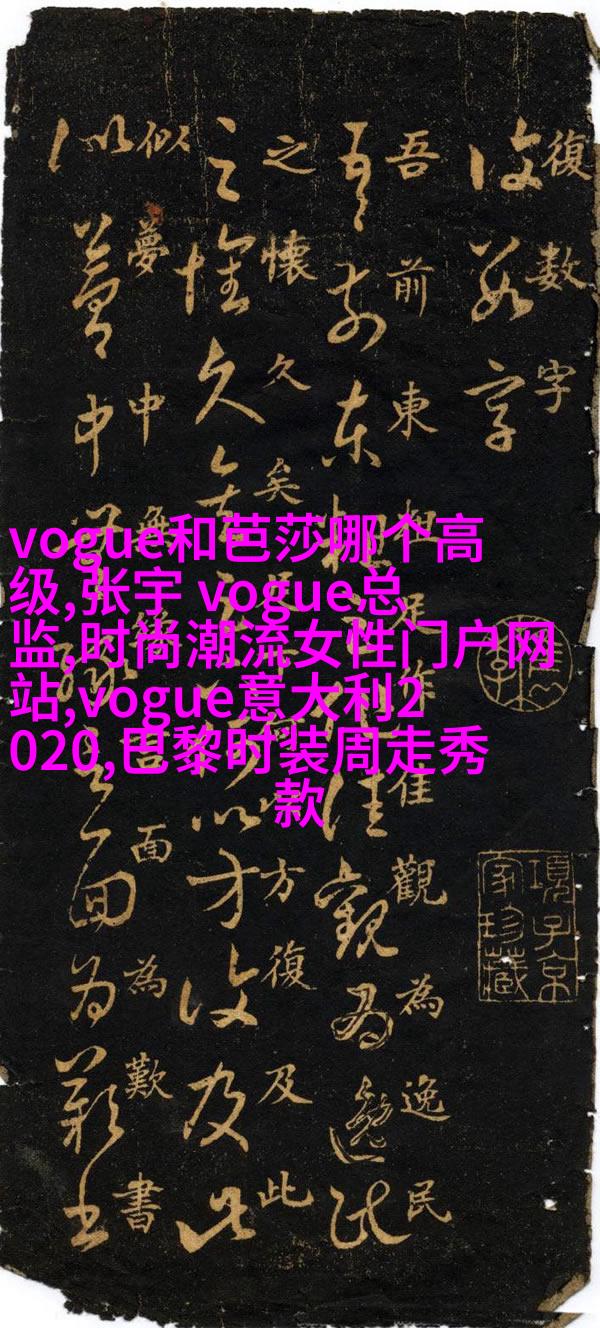 vogue和芭莎哪个高
级,张宇 vogue总
监,时尚潮流女性门户网
站,vogue意大利2
020,巴黎时装周走秀
款
復数字
吾前東粗足作佳觀為逸民
之懷久矣方復及此
似夢中無面為歎書
項子京
家珍藏